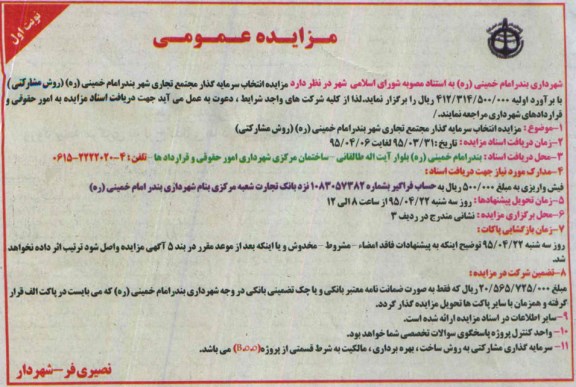 نوبت اول
مزایده عمومی
شهرداری بندرامام خمینی (ره) به استناد مصوبه شورای اسلامی شهر در نظر دارد مزایده انتخاب سرمایه گذار مجتمع تجاری شهر بندرامام خمینی (ره) (روش مشارکتی)
با برآورد اولیه ۴۱۲/۳۱۴/۵۰۰/۰۰۰ ریال را برگزار نماید.لذا از کلیه شرکت های واجد شرایط ، دعوت به عمل می آید جهت دریافت اسناد مزایده به امور حقوقی و
قراردادهای شهرداری مراجعه نمایند./
۱-موضوع : مزایده انتخاب سرمایه گذار مجتمع تجاری شهر بندرامام خمینی (ره) (روش مشارکتی)
۲-زمان دریافت اسناد مزایده : تاریخ: ۹۵/۰۳/۳۱ لغایت ۹۵/۰۴/۰۶
۳-محل دریافت اسناد : بندرامام خمینی (ره) بلوار آیت اله طالقانی - ساختمان مرکزی شهرداری امور حقوقی و قرارداد ها -تلفن: ۴-۲۲۲۲۰۲۰-۰۶۱۵
۴-مدارک مورد نیاز جهت دریافت اسناد:
فیش واریزی به مبلغ ۵۰۰/۰۰۰ ریال به حساب فراگیر بشماره ۱۰۸۳۰۵۷۳۸۲ نزد بانک تجارت شعبه مرکزی بنام شهرداری بندر امام خمینی (ره)
۵-زمان تحویل پیشنهادها : روز سه شنبه ۹۵/۰۴/۲۲ از ساعت ۸ الی ۱۲
۶-محل برگزاری مزایده : نشانی مندرج در ردیف ۳
۷-زمان بازگشایی پاکات :
روز سه شنبه ۹۵/۰۴/۲۲ توضیح اینکه به پیشنهادات فاقد امضاء - مشروط - مخدوش و یا اینکه بعد از موعد مقرر در بند ۵ آگهی مزایده واصل شود ترتیب اثر داده نخواهد
شد.
۸-تضمین شرکت در مزایده :
مبلغ ۲۰/۵۶۵/۷۲۵/۰۰۰ ریال که فقط به صورت ضمانت نامه معتبر بانکی و یا چک تضمینی بانکی در وجه شهرداری بندرامام خمینی (ره) که می بایست در پاکت الف قرار
گرفته و همزمان با سایر پاکت ها تحویل مزایده گذار گردد.
۹-سایر اطلاعات در اسناد مزایده ارائه شده است.
۱۰-واحد کنترل پروژه پاسخگوی سوالات تخصصی شما خواهد بود.
۱۱- سرمایه گذاری مشارکتی به روش ساخت ، بهره برداری ، مالکیت به شرط قسمتی از پروژه می باشد.
نصیری فر-شهردار